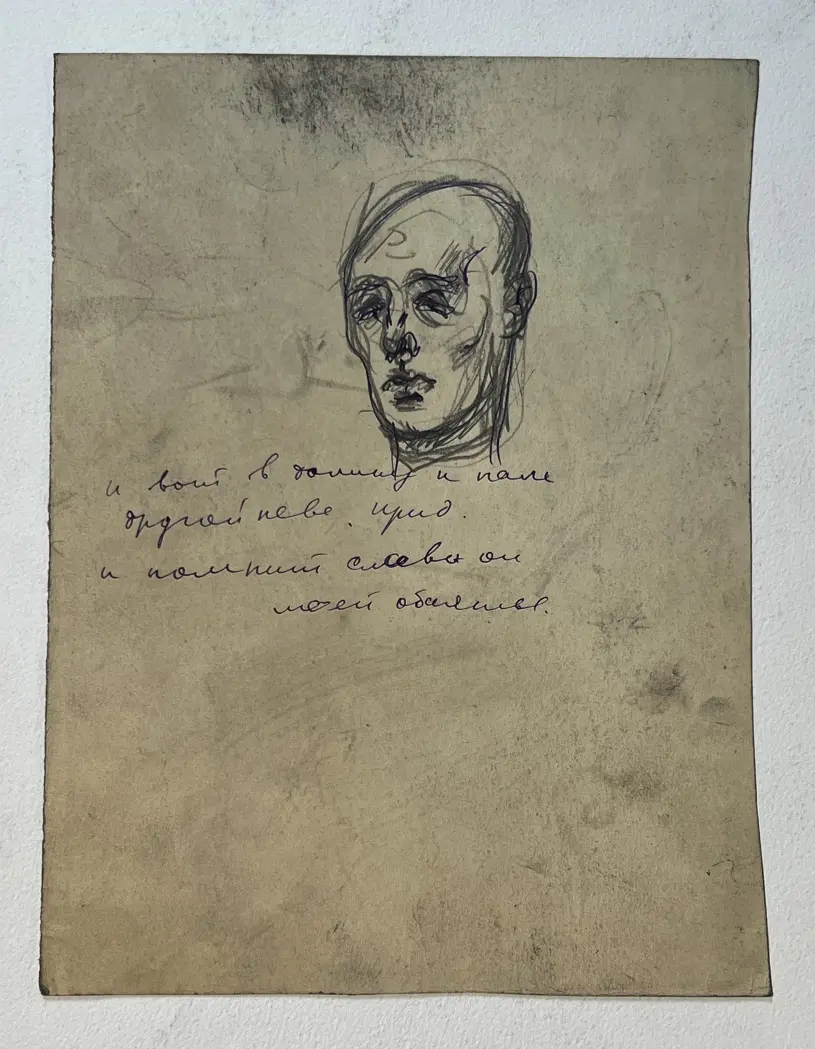 и вот в долину и поле
другой неве. прид.
и помнит слава он
моей